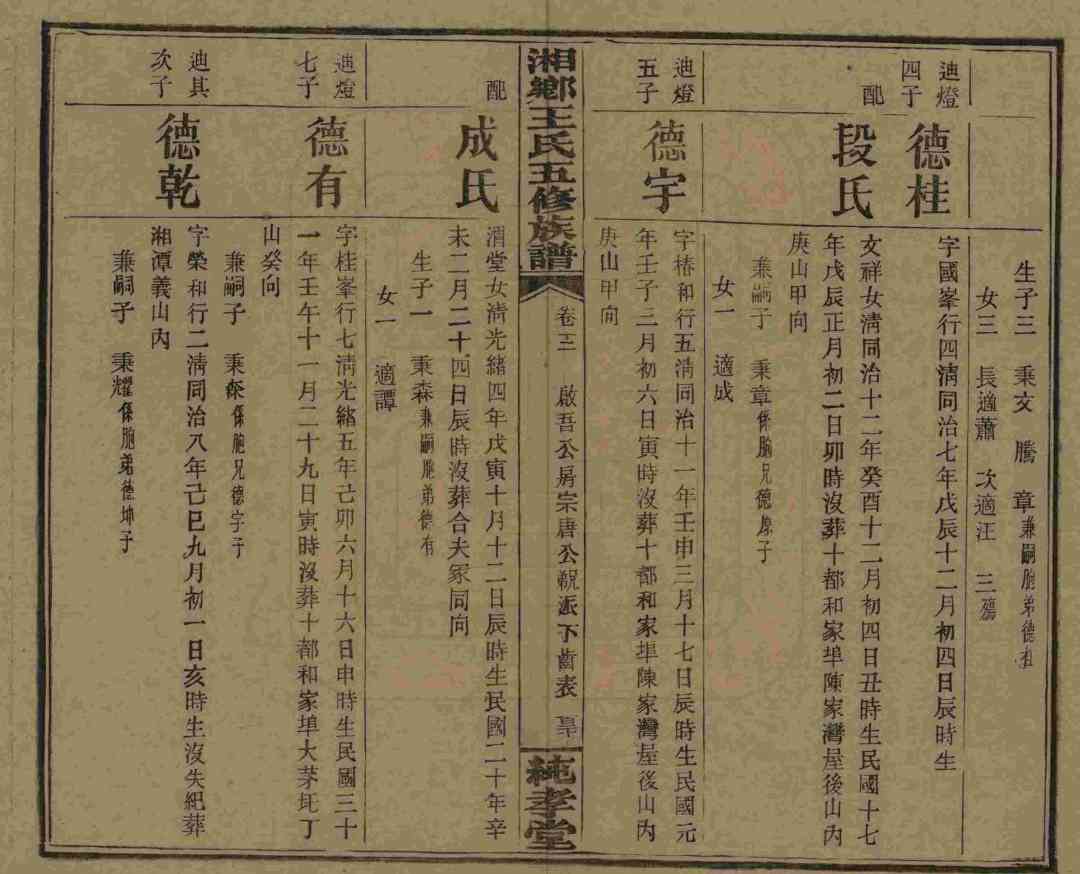 生子三　秉文　騰　章兼嗣胞弟德桂
女三　長適蕭　次適汪　三殤
迪燈四子
德桂
字國峯行四淸同治七年戊辰十二月初四日辰時生
配
段氏
文祥女淸同治十二年癸酉十二月初四日丑時生民國十七
年戊辰正月初二日卯時沒葬十都和家埠陳家灣屋後山內
庚山甲向
兼嗣子　秉章係胞兄德　子
女一　適成
迪燈五子
德宇
字椿和行五淸同治十一年壬申三月十七日辰時生民國元
年壬子三月初六日寅時沒葬十都和家埠陳家灣屋後山內
庚山甲向
湘鄉王氏五修族譜
卷三　啟吾公房宗唐公　派下齒表
純孝堂
配
成氏
渭堂女淸光緒四年戊寅十月十二日辰時生民國二十年辛
未二月二十四日辰時沒葬合夫冢同向
生子一　秉森兼嗣胞弟德有
女一　適譚
迪燈七子
德有
字桂峯行七淸光緒五年己卯六月十六日申時生民國三十
一年壬午十一月二十九日寅時沒葬十都和家埠大茅坵丁
山癸向
兼嗣子　秉森係胞兄德宇子
迪其次子
德乾
字榮和行二淸同治八年己巳九月初一日亥時生沒失紀葬
湘潭義山內
兼嗣子　秉耀係胞弟德坤子